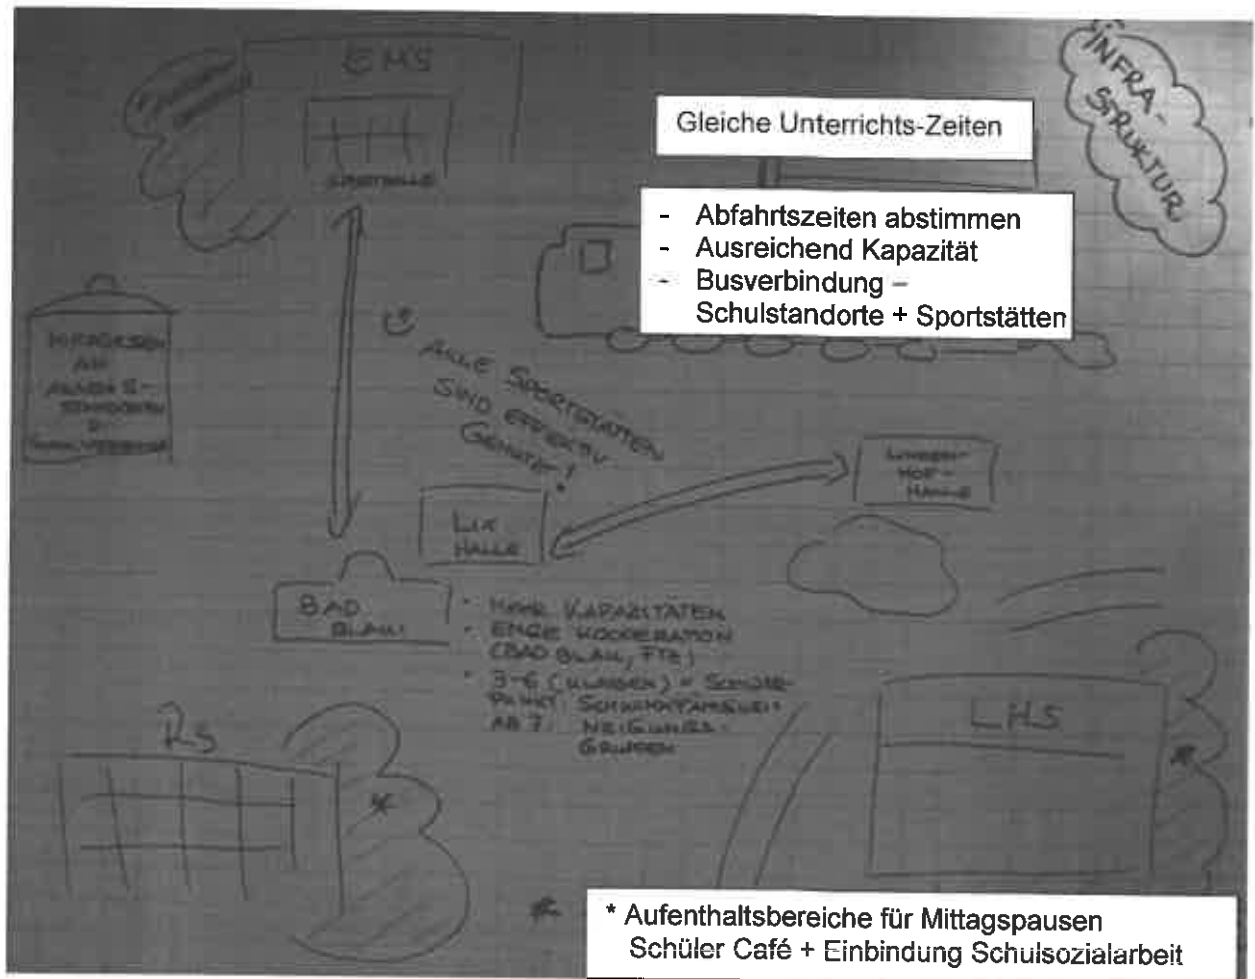 EMS
INFRA-
STRUKTUR
Gleiche Unterrichts-Zeiten
- Abfahrtszeiten abstimmen
- Ausreichend Kapazität
- Busverbindung –
Schulstandorte + Sportstätten
MITTAGESSEN
AN
ALLE SPORTSTÄTTEN
SIND EFFEKTIV
GENUTZT!
LIX
HALLE
HALLE
BAD
BLAU
• MEHR KAPAZITÄTEN
• ENGE KOOPERATION
(BAD BLAU, TTZ)
• 3-6 (KLASSEN) =
AB 7: NEIGUNGS-
GRUPPEN
RS
LHS
* Aufenthaltsbereiche für Mittagspausen
Schüler Café + Einbindung Schulsozialarbeit